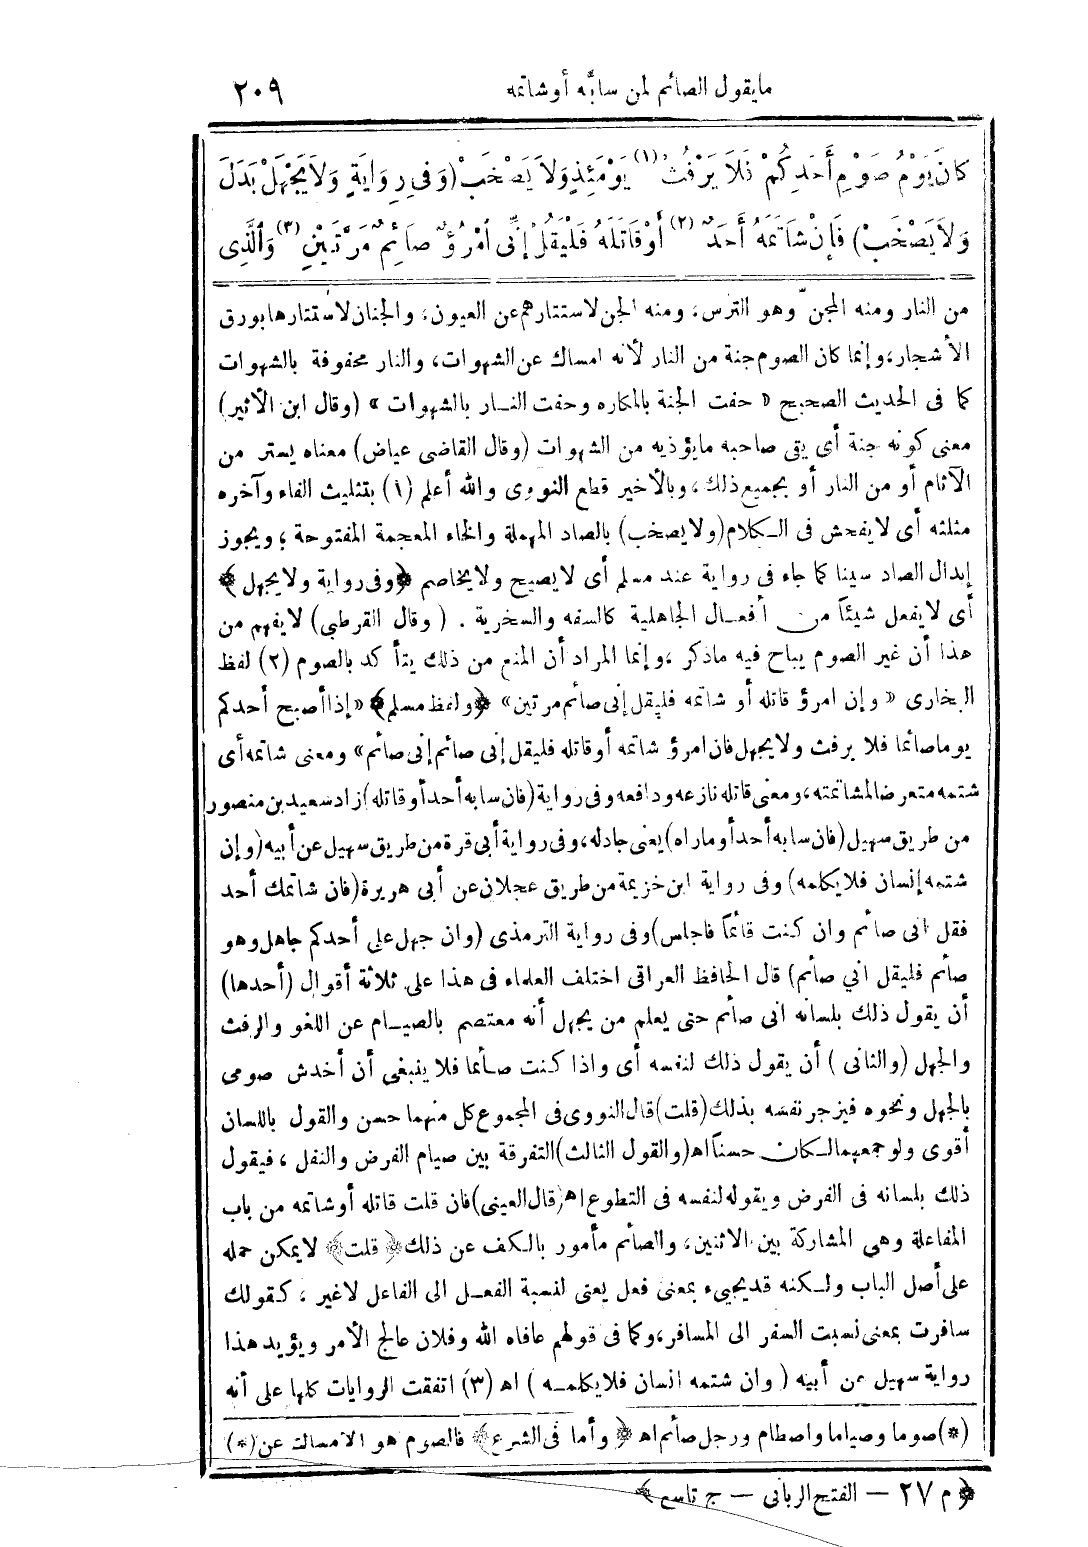 مايقول الصائم لمن سابَّه أوشاتمه ٢٠٩
كَانَ يَوْمُ صَوْمِ أَحَدِكُمْ فَلاَ يَرْفُثْ (١) يَوْمَئِذٍ وَلاَ يَصْخَبْ (وَفِى رِوَايَةٍ وَلاَ يَجْهَلْ بَدَلَ
وَلاَ يَصْخَبْ) فَإِنْ شَاتَمَهُ أَحَدٌ (٢) أَوْ قَاتَلَهُ فَلْيَقُلْ إِنِّى اَمْرُؤٌ صَائِمٌ مَرَّتَيْنِ (٣) وَالَّذِى
من النار ومنه المجنّ وهو الترس، ومنه الجن لاستتارهم عن العيون، والجنان لاستتارها بورق
الأشجار، وإنما كان الصوم جنة من النار لأنه امساك عن الشهوات، والنار محفوفة بالشهوات
كما فى الحديث الصحيح « حفت الجنة بالمكاره وحفت النـار بالشهوات » (وقال ابن الأثير)
معنى كونه جنة أى يقى صاحبه مايؤذيه من الشهوات (وقال القاضى عياض) معناه يستر من
الآثام أو من النار أو بجميع ذلك، وبالأخير قطع النووى والله أعلم (١) بتثليث الفاء وآخره
مثلثه أى لا يفحش فى الـكلام (ولا يصخب) بالصاد المهملة والخاء المعجمة المفتوحة؛ ويجوز
إبدال الصاد سينا كما جاء فى رواية عند مسلم أى لا يصيح ولا يخاصم ﴿وفى رواية ولا يجهل ﴾
أى لا يفعل شيئاً من أفعـال الجاهلية كالسفه والسخرية . (وقال القرطبى) لا يفهم من
هذا أن غير الصوم يباح فيه ماذكر، وإنما المراد أن المنع من ذلك يتأكد بالصوم (٢) لفظ
البخارى « وإن امرؤ قاتله أو شاتمه فليقل إنى صائم مرتين » ﴿ولفظ مسلم﴾ « إذا أصبح أحدكم
يوما صائما فلا يرفث ولا يجهل فان امرؤ شاتمه أو قاتله فليقل إنى صائم إنى صائم » ومعنى شاتمه أى
شتمه متعرضا لمشاتمته، ومعنى قاتله نازعه ودافعه وفى رواية (فان سابه أحد أو قاتله) زاد سعيد بن منصور
من طريق سهيل (فان سابه أحد أو ماراه) يعنى جادله، وفى رواية أبى قرة من طريق سهيل عن أبيه (وإن
شتمه إنسان فلا يكلمه) وفى رواية ابن خزيمة من طريق عجلان عن أبى هريرة (فان شاتمك أحد
فقل انى صائم وان كنت قائماً فاجلس) وفى رواية الترمذى (وان جهل على أحدكم جاهل وهو
صائم فليقل اني صائم) قال الحافظ العراقى اختلف العلماء فى هذا على ثلاثة أقوال (أحدها)
أن يقول ذلك بلسانه انى صائم حتى يعلم من يجهل أنه معتصم بالصيـام عن اللغو والرفث
والجهل (والثانى) أن يقول ذلك لنفسه أى واذا كنت صائما فلا ينبغى أن أخدش صومى
بالجهل ونحوه فيزجر نفسه بذلك (قلت) قال النووى فى المجموع كل منهما حسن والقول باللسان
أقوى ولو جمعهما لـكان حسناً اه (والقول الثالث) التفرقة بين صيام الفرض والنفل، فيقول
ذلك بلسانه فى الفرض ويقوله لنفسه فى التطوع اه (قال العينى) فان قلت قاتله أو شاتمه من باب
المفاعلة وهي المشاركة بين الاثنين، والصائم مأمور بالـكف عن ذلك ﴿ قلت ﴾ لا يمكن حمله
على أصل الباب ولـكنه قد يجيء بمعنى فعل يعنى لنسبة الفعـل الى الفاعل لا غير، كـقولك
سافرت بمعنى نسبت السفر الى المسافر، وكما فى قولهم عافاه الله وفلان عالج الأمر ويؤيد هذا
رواية سهيل عن أبيه (وان شتمه انسان فلا يكلمـه) اه (٣) اتفقت الروايات كلها على أنه
(*) صوما وصياما واصطام ورجل صائم اه ﴿ وأما فى الشرع ﴾ فالصوم هو الامساك عن (*)
﴿ م ٢٧ — الفتح الربانى — ج تاسع ﴾